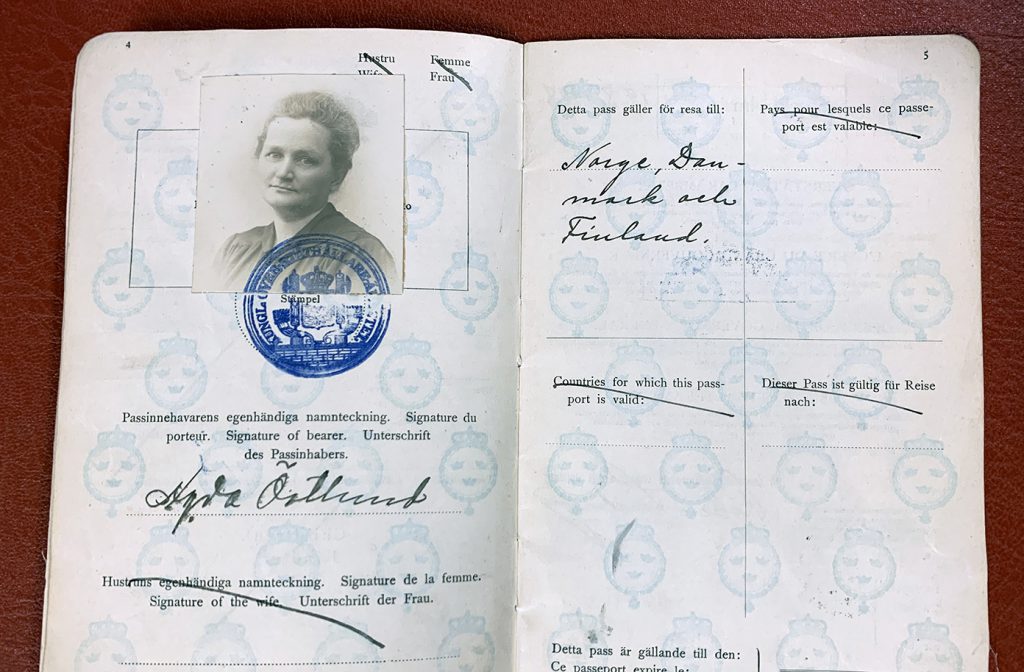 4
Hustru Femme
Wife Frau
Stämpel
Passinnehavarens egenhändiga namnteckning. Signature du
porteur. Signature of bearer. Unterschrift
des Passinhabers.
Östlund
Hustruns egenhändiga namnteckning. Signature de la femme.
Signature of the wife. Unterschrift der Frau.
5
Detta pass gäller för resa till:
Norge, Dan-
mark och
Finland.
Pays pour lesquels ce passe-
port est valable:
Countries for which this pass-
port is valid:
Dieser Pass ist gültig für Reise
nach:
Detta pass är gällande till den:
Ce passeport expire le: